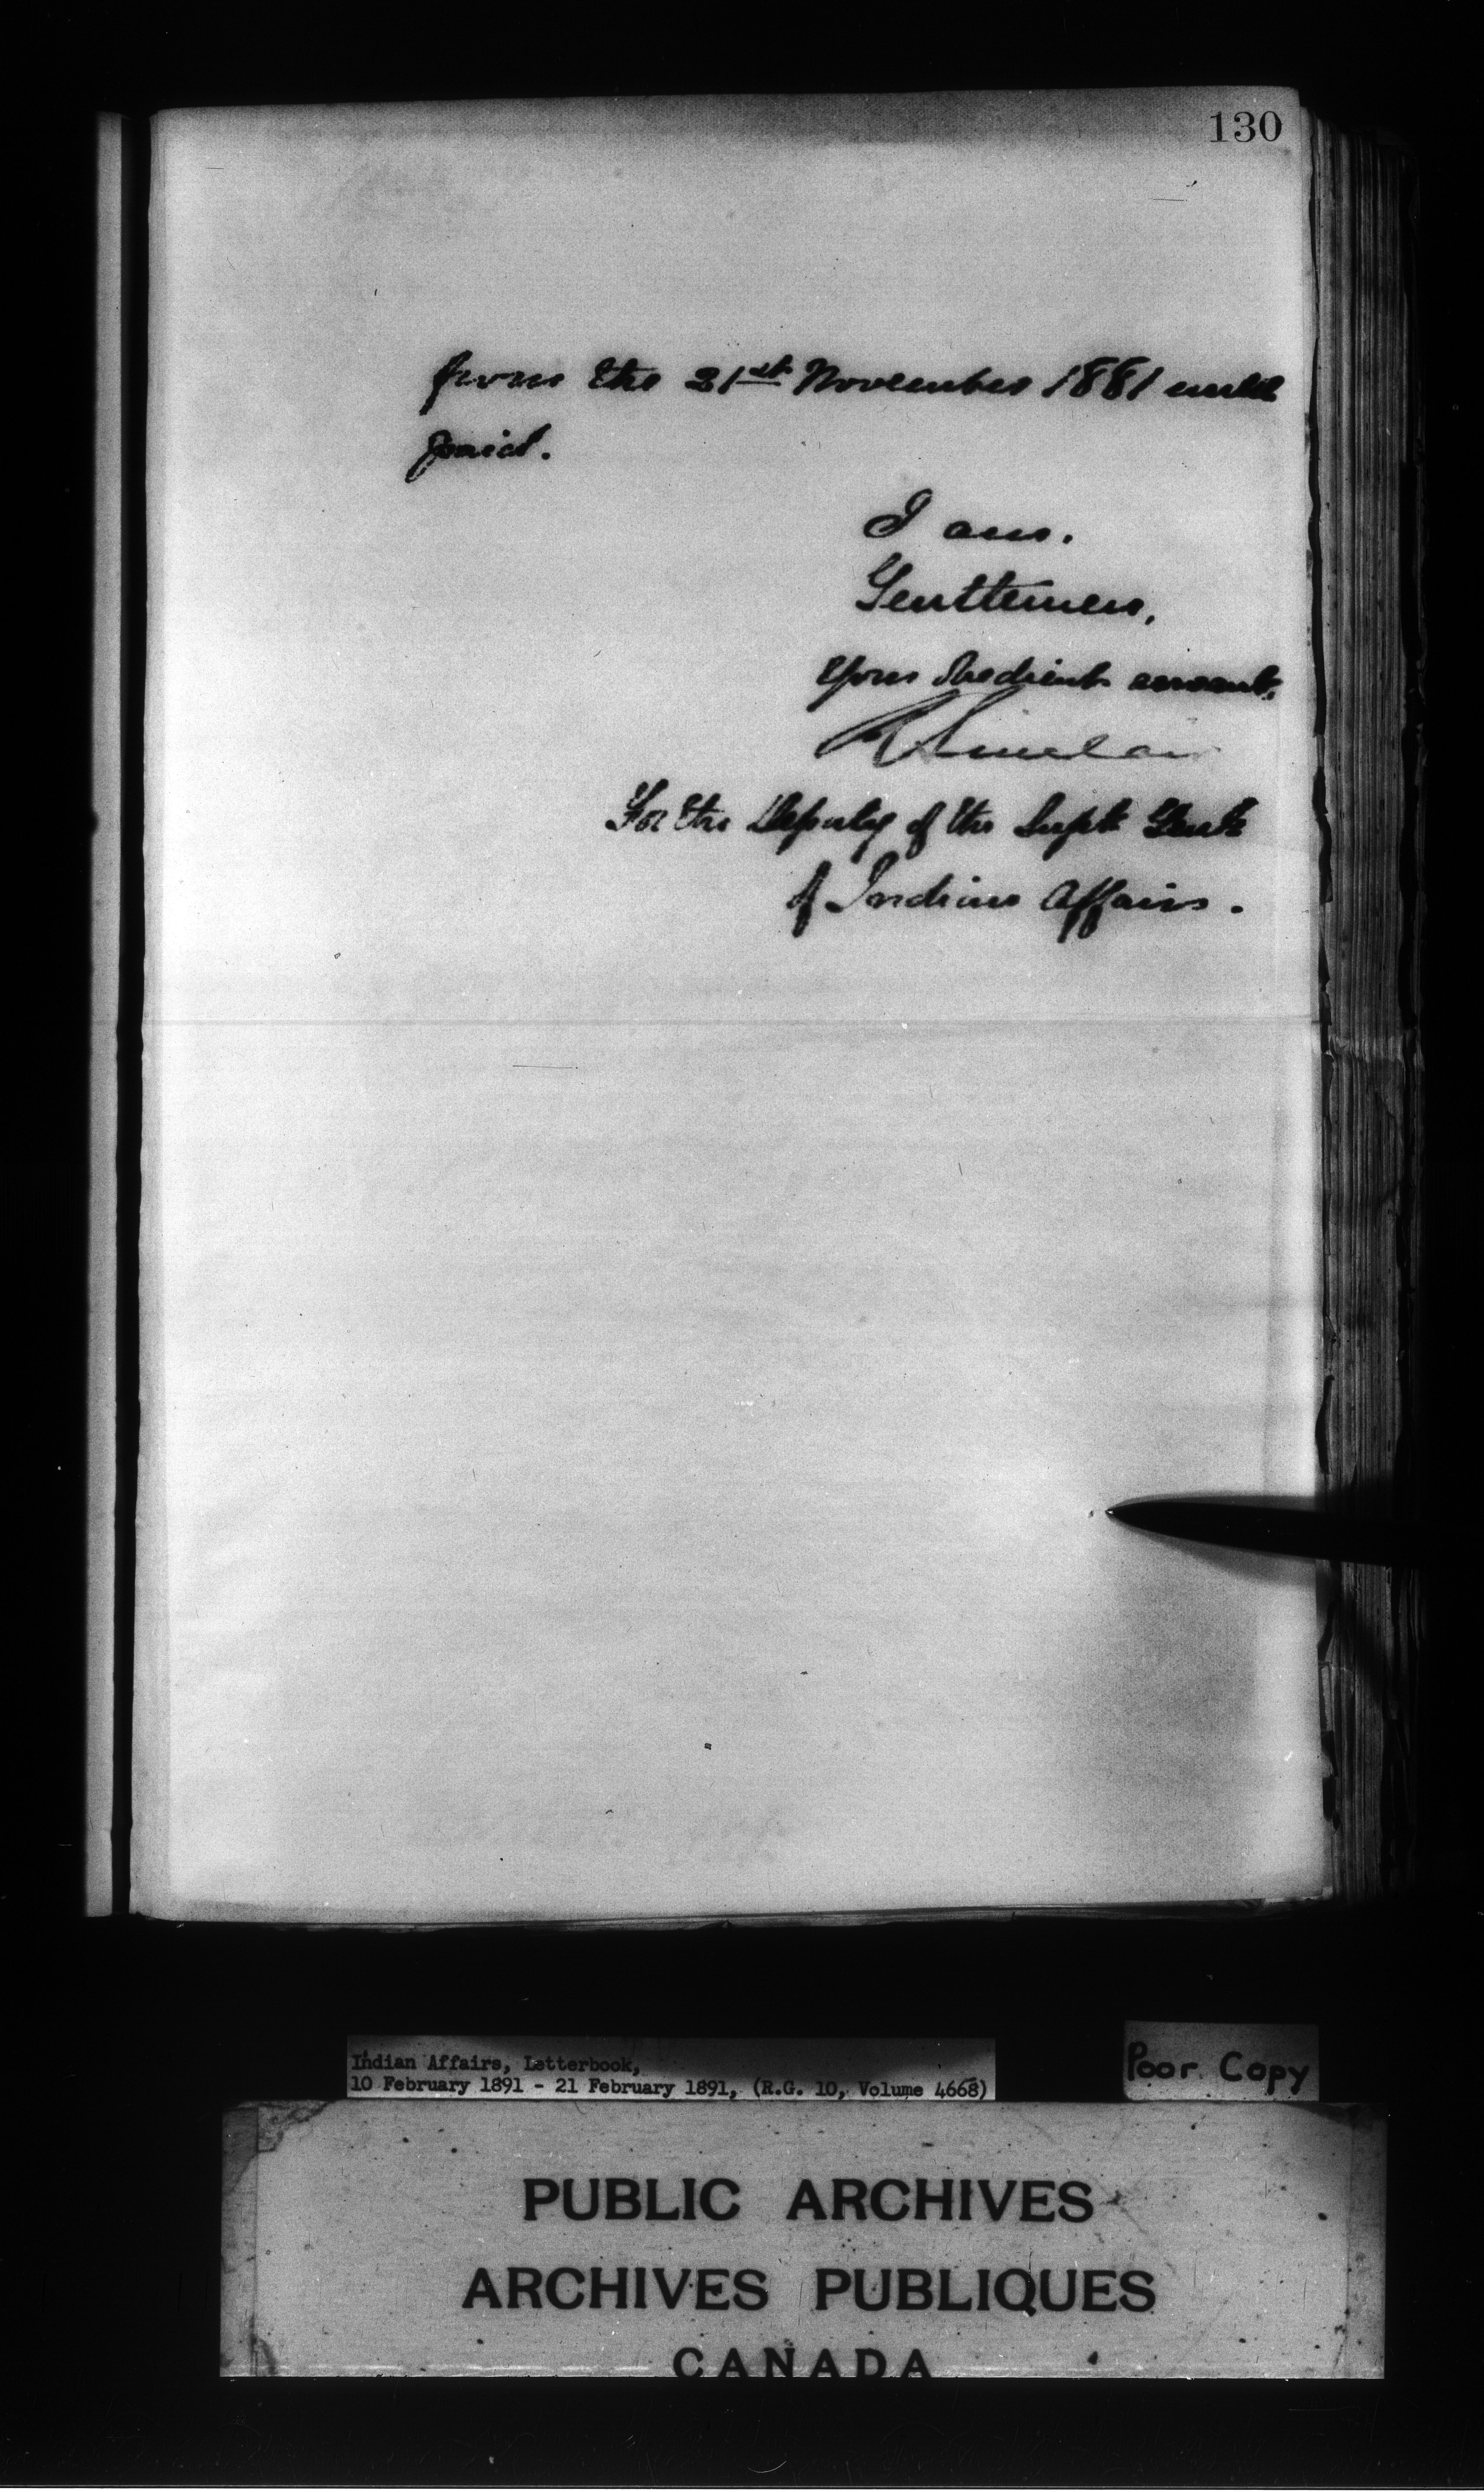 130
from the 21st November 1881 until
paid.
I am.
Gentlemen,
Your obedient servant,
R Sinclair
For the Deputy of the Supt Genl
of Indian Affairs.
Indian Affairs, Letterbook,
10 February 1891 - 21 February 1891, (R.G. 10, Volume 4668)
Poor Copy
PUBLIC ARCHIVES
ARCHIVES PUBLIQUES
CANADA